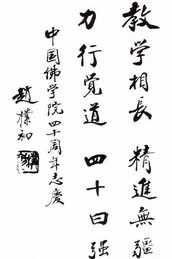 教学相长 精進無疆
力行觉道 四十曰强
中国佛学院四十周年志慶
趙樸初